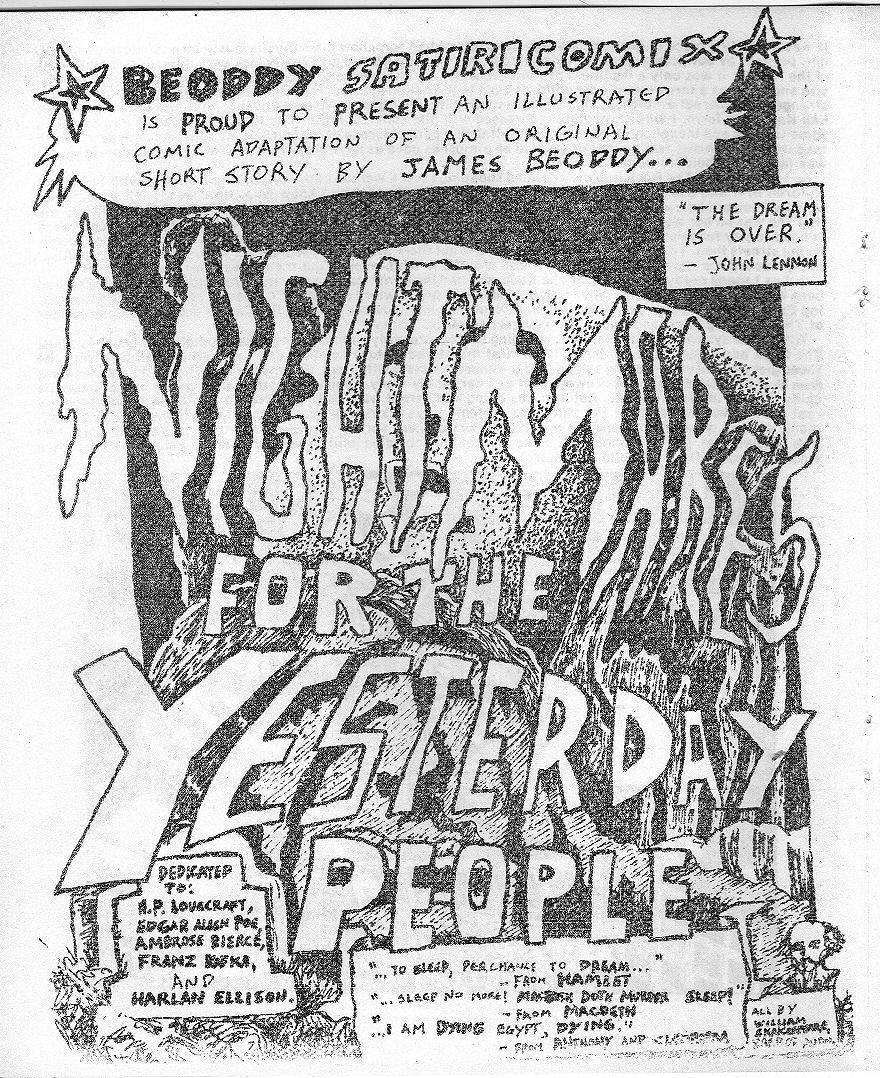 BEODDY SATIRICOMIX
IS PROUD TO PRESENT AN ILLUSTRATED
COMIC ADAPTATION OF AN ORIGINAL
SHORT STORY BY JAMES BEODDY...
"THE DREAM
IS OVER."
- JOHN LENNON
NIGHTMARES
FOR THE
YESTERDAY
PEOPLE
DEDICATED
TO:
H.P. LOVECRAFT,
EDGAR ALLEN POE,
AMBROSE BIERCE,
FRANZ
AND
HARLAN ELLISON.
"...TO SLEEP, PERCHANCE TO DREAM..."
- FROM HAMLET
"...SLEEP NO MORE! MACBETH DOTH MURDER SLEEP!"
- FROM MACBETH
"...I AM DYING EGYPT, DYING."
- FROM ANTHONY AND CLEOPATRA
ALL BY
WILLIAM
SHAKESPEARE,